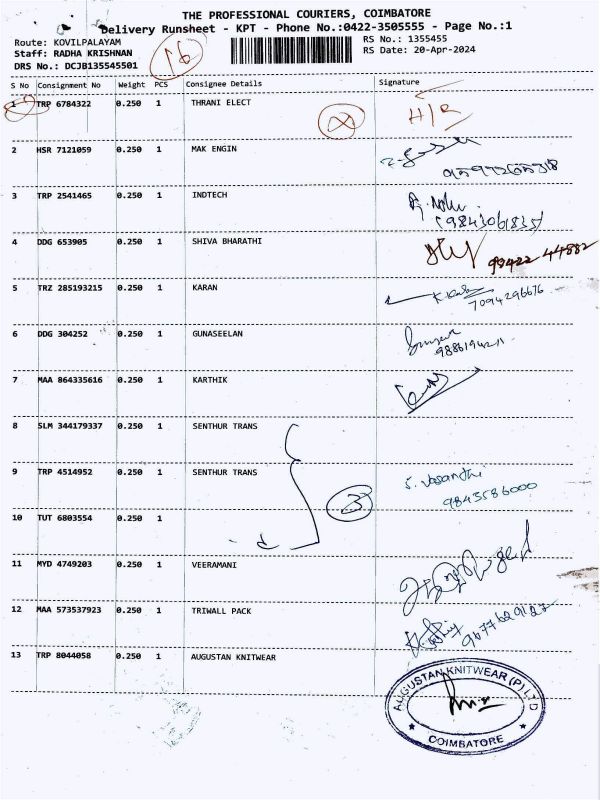 THE PROFESSIONAL COURIERS, COIMBATORE
Delivery Runsheet - KPT - Phone No.:0422-3505555 - Page No.:1
Route: KOVILPALAYAM
RS No.: 1355455
Staff: RADHA KRISHNAN
RS Date: 20-Apr-2024
DRS No.: DCJB135545501
16
S No Consignment No Weight PCS Consignee Details Signature
1 TRP 6784322 0.250 1 THRANI ELECT H/R
2 HSR 7121059 0.250 1 MAK ENGIN
3 TRP 2541465 0.250 1 INDTECH
(9843061835)
4 DDG 653905 0.250 1 SHIVA BHARATHI
99422 44882
5 TRZ 285193215 0.250 1 KARAN
7094296676
6 DDG 304252 0.250 1 GUNASEELAN
7 MAA 864335616 0.250 1 KARTHIK
8 SLM 344179337 0.250 1 SENTHUR TRANS
9 TRP 4514952 0.250 1 SENTHUR TRANS S. Vasanthi
9843586000
3
10 TUT 6803554 0.250 1
11 MYD 4749203 0.250 1 VEERAMANI
12 MAA 573537923 0.250 1 TRIWALL PACK
9677629122
13 TRP 8044058 0.250 1 AUGUSTAN KNITWEAR
AUGUSTAN KNITWEAR (P) LTD
COIMBATORE